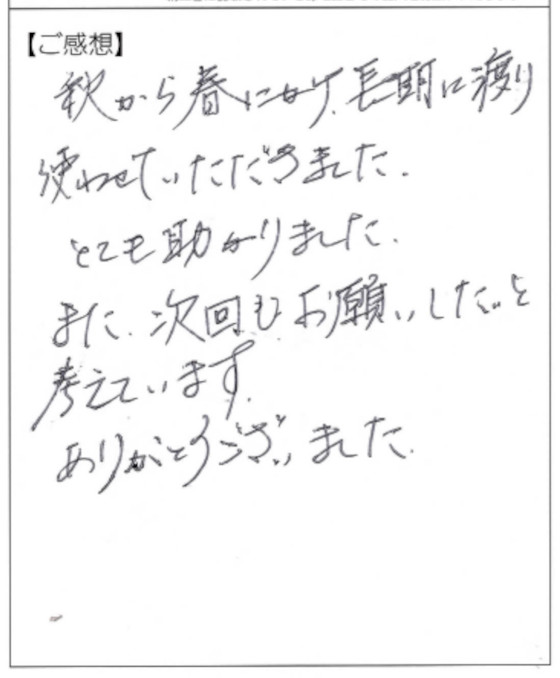 【ご感想】
秋から春にかけ、長期に渡り
使わせていただきました.
とても助かりました.
また、次回もお願いしたいと
考えています.
ありがとうございました.